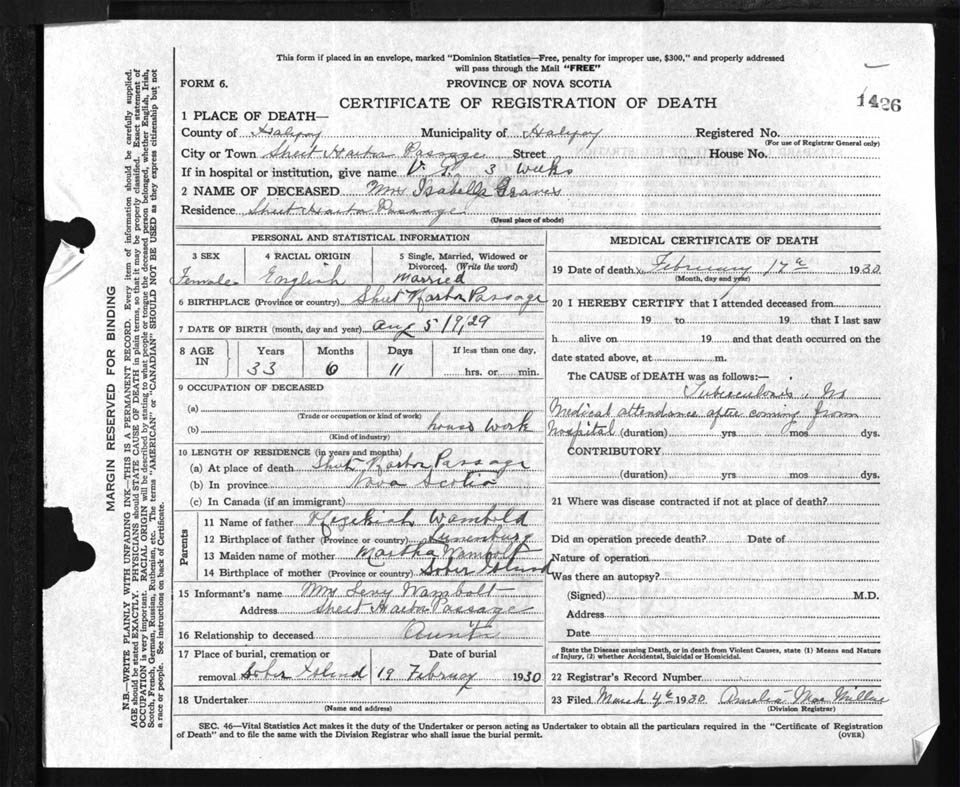 This form if placed in an envelope, marked "Dominion Statistics—Free, penalty for improper use, $300," and properly addressed
will pass through the Mail "FREE"
FORM 6.
PROVINCE OF NOVA SCOTIA
CERTIFICATE OF REGISTRATION OF DEATH
1426
1 PLACE OF DEATH—
County of Halifax Municipality of Halifax Registered No.
(For use of Registrar General only)
City or Town Sheet Harbor Passage Street House No.
If in hospital or institution, give name V. G. 3 Weeks
2 NAME OF DECEASED Mrs Isabelle Graves
Residence Sheet Harbor Passage
(Usual place of abode)
PERSONAL AND STATISTICAL INFORMATION
3 SEX 4 RACIAL ORIGIN 5 Single, Married, Widowed or
Divorced. (Write the word)
Female English Married
6 BIRTHPLACE (Province or country) Sheet Harbor Passage
7 DATE OF BIRTH (month, day and year) Aug 5 1929
8 AGE IN Years Months Days If less than one day,
33 6 11 hrs. or min.
9 OCCUPATION OF DECEASED
(a)
(Trade or occupation or kind of work)
(b) house work
(Kind of industry)
10 LENGTH OF RESIDENCE (in years and months)
(a) At place of death Sheet Harbor Passage
(b) In province Nova Scotia
(c) In Canada (if an immigrant)
Parents
11 Name of father Hezekiah Wambold
12 Birthplace of father (Province or country) Lunenburg
13 Maiden name of mother Martha Wambolt
14 Birthplace of mother (Province or country) Sober Island
15 Informant's name Mrs Levy Wambolt
Address Sheet Harbor Passage
16 Relationship to deceased Auntie
17 Place of burial, cremation or Date of burial
removal Sober Island 19 February 1930
18 Undertaker
(Name and address)
MEDICAL CERTIFICATE OF DEATH
19 Date of death February 17th 1930
(Month, day and year)
20 I HEREBY CERTIFY that I attended deceased from
19 to 19 that I last saw
h alive on 19 and that death occurred on the
date stated above, at m.
The CAUSE of DEATH was as follows:—
Tuberculosis. No
Medical attendance after coming from
hospital (duration) yrs mos dys.
CONTRIBUTORY
(duration) yrs mos dys.
21 Where was disease contracted if not at place of death?
Did an operation precede death? Date of
Nature of operation
Was there an autopsy?
(Signed) M.D.
Address
Date
State the Disease causing Death, or in death from Violent Causes, state (1) Means and Nature
of Injury, (2) whether Accidental, Suicidal or Homicidal.
22 Registrar's Record Number
23 Filed March 4th 1930 Amelia MacMillan
(Division Registrar)
SEC. 46—Vital Statistics Act makes it the duty of the Undertaker or person acting as Undertaker to obtain all the particulars required in the "Certificate of Registration
of Death" and to file the same with the Division Registrar who shall issue the burial permit.
(OVER)
MARGIN RESERVED FOR BINDING
N.B.—WRITE PLAINLY WITH UNFADING INK—THIS IS A PERMANENT RECORD. Every item of information should be carefully supplied.
AGE should be stated EXACTLY. PHYSICIANS should STATE CAUSE OF DEATH in plain terms, so that it may be properly classified. Exact statement of
OCCUPATION is very important. RACIAL ORIGIN will be described by stating to what people or tongue the deceased person belonged, whether English, Irish,
Scotch, French, German, Russian, Ruthenian, etc. The terms "AMERICAN" or "CANADIAN" SHOULD NOT BE USED as they express citizenship but not
a race or people. See instructions on back of Certificate.